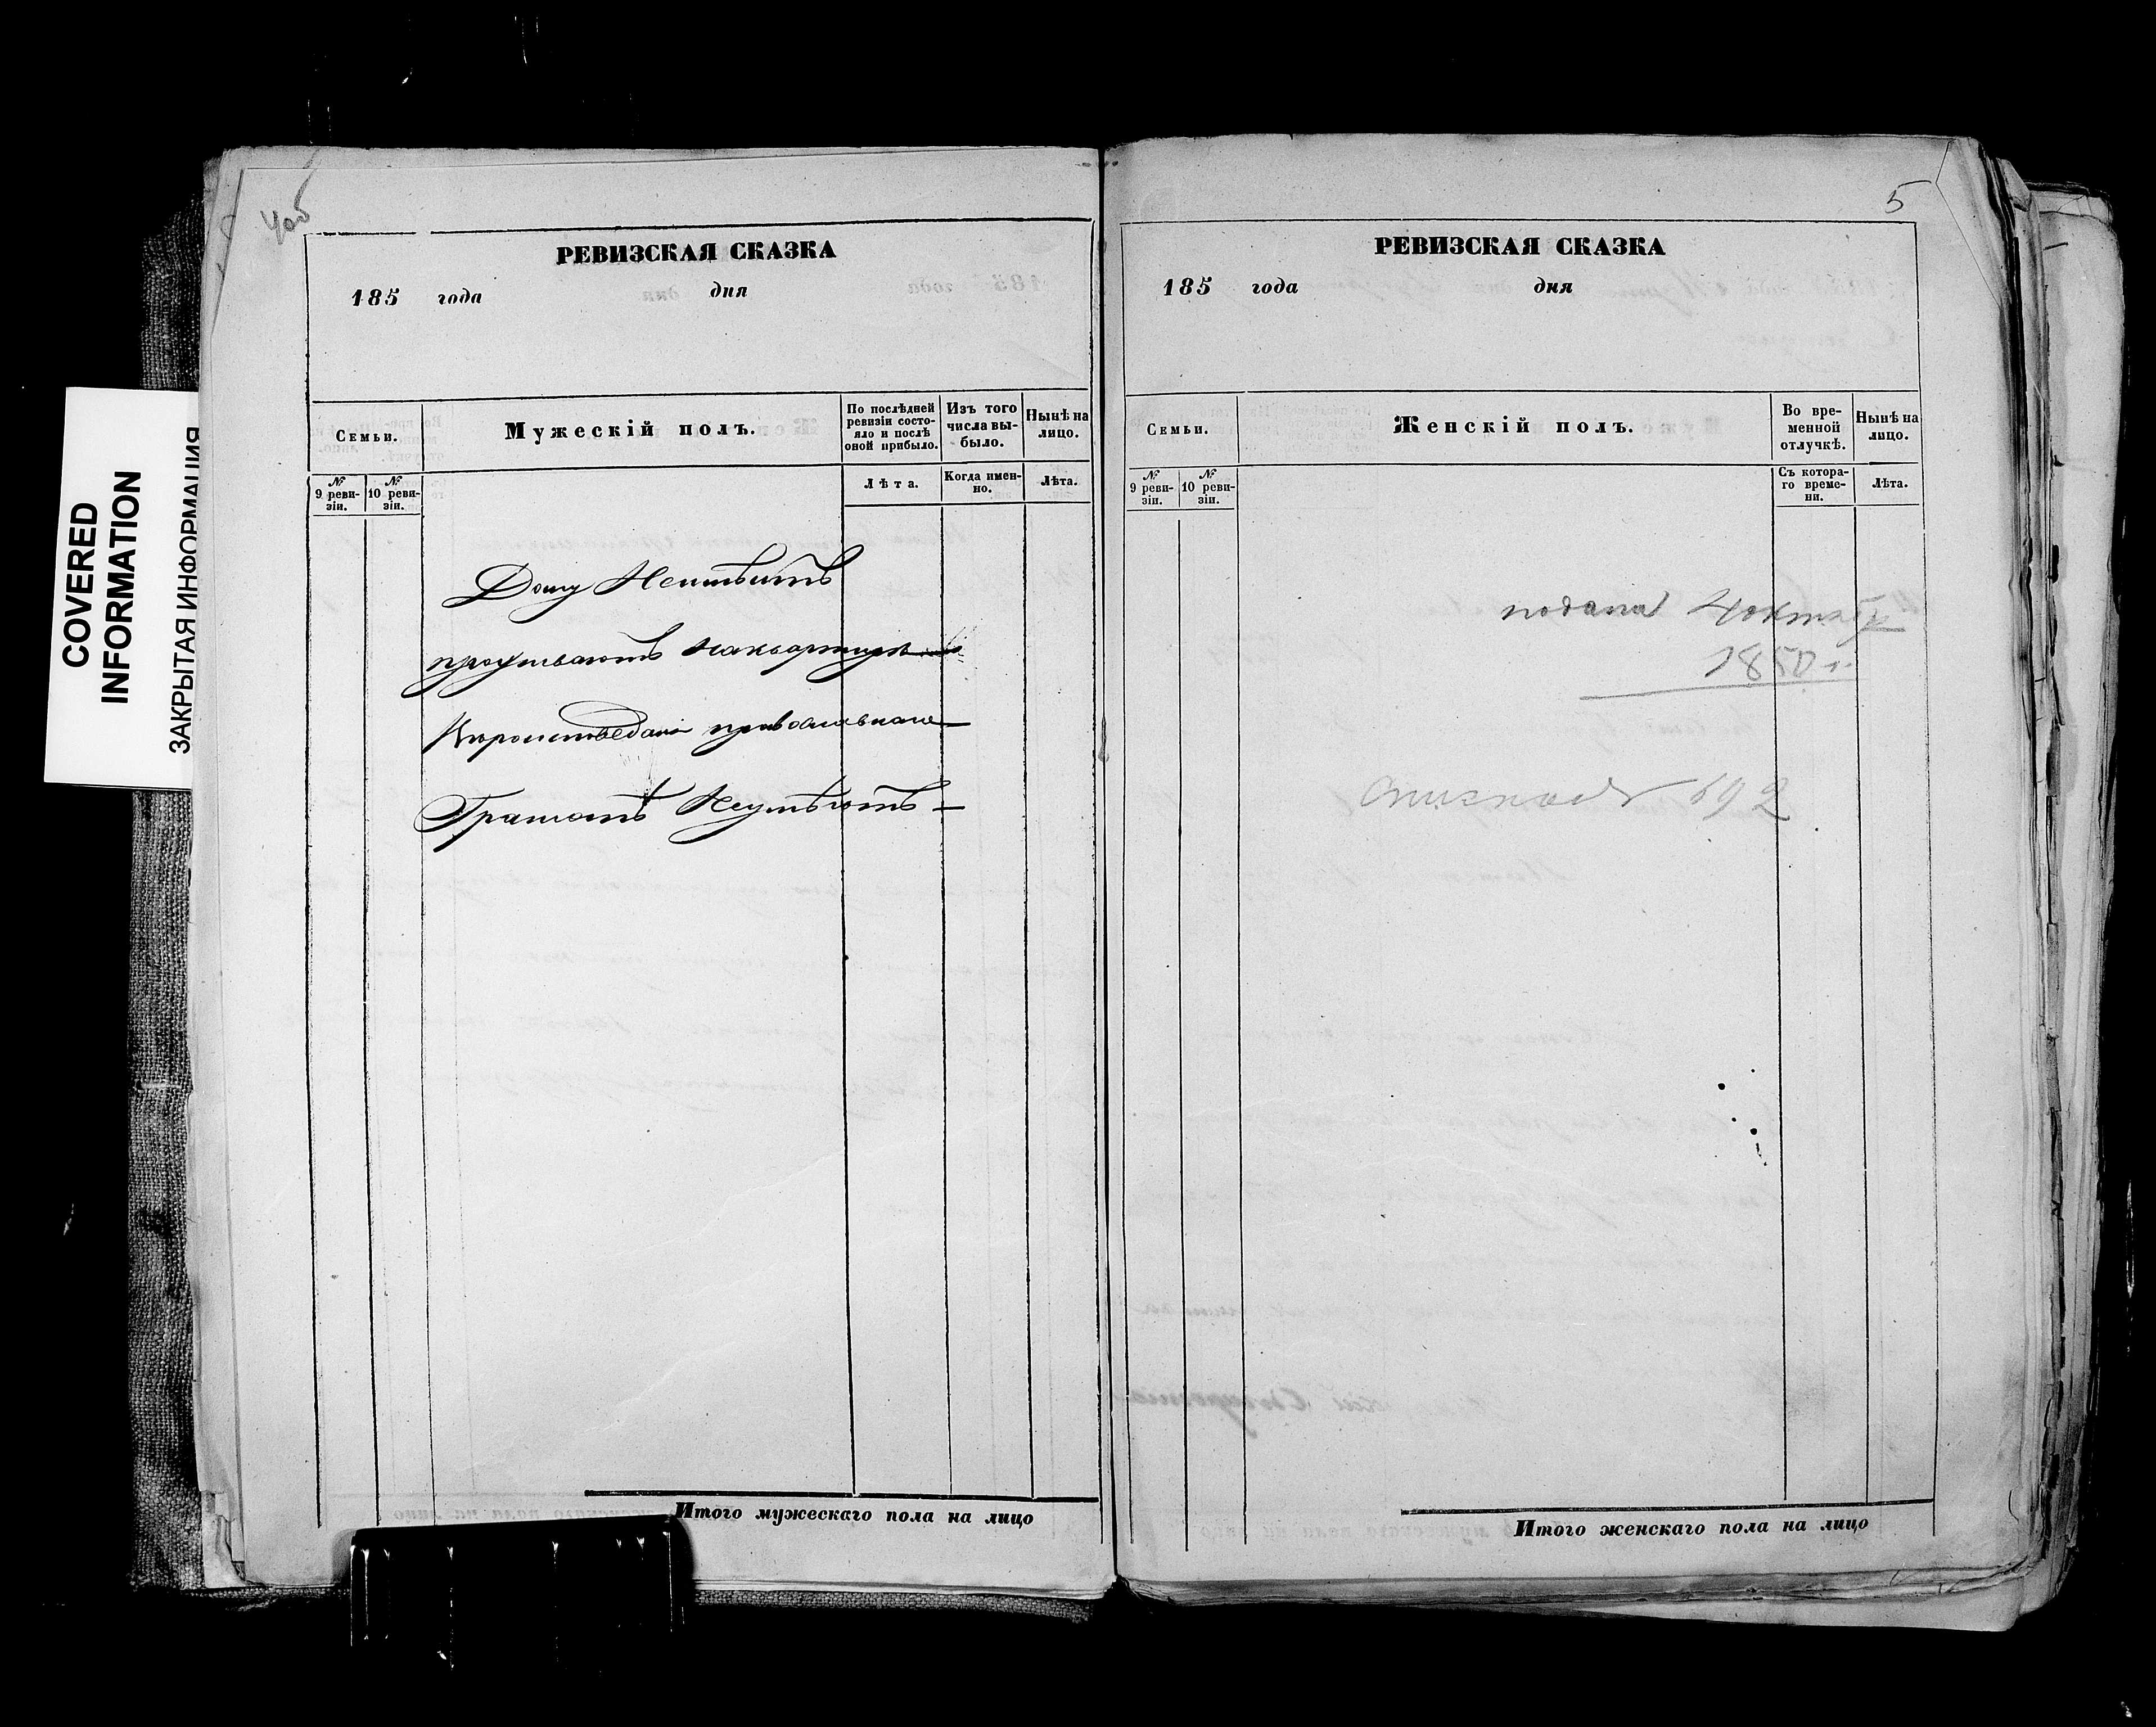 COVERED
INFORMATION
ЗАКРЫТАЯ ИНФОРМАЦИЯ
4об
РЕВИЗСКАЯ СКАЗКА
185 года дня
Семьи.
Мужескій полъ.
По послѣдней
ревизіи состо-
яло и послѣ
оной прибыло.
Изъ того
числа вы-
было.
Нынѣ на
лицо.
№
9 реви-
зіи.
№
10 реви-
зіи.
Лѣта.
Когда имен-
но.
Лѣта.
Дому Неимѣитъ
проживаютъ наквартире
православнаго
Грамотѣ Неумѣютъ
Итого мужескаго пола на лицо
5
РЕВИЗСКАЯ СКАЗКА
185 года дня
Семьи.
Женскій полъ.
Во вре-
менной
отлучкѣ.
Нынѣ на
лицо.
№
9 реви-
зіи.
№
10 реви-
зіи.
Съ котора-
го време-
ни.
Лѣта.
подана 4 октяб
1850 г.
692
Итого женскаго пола на лицо